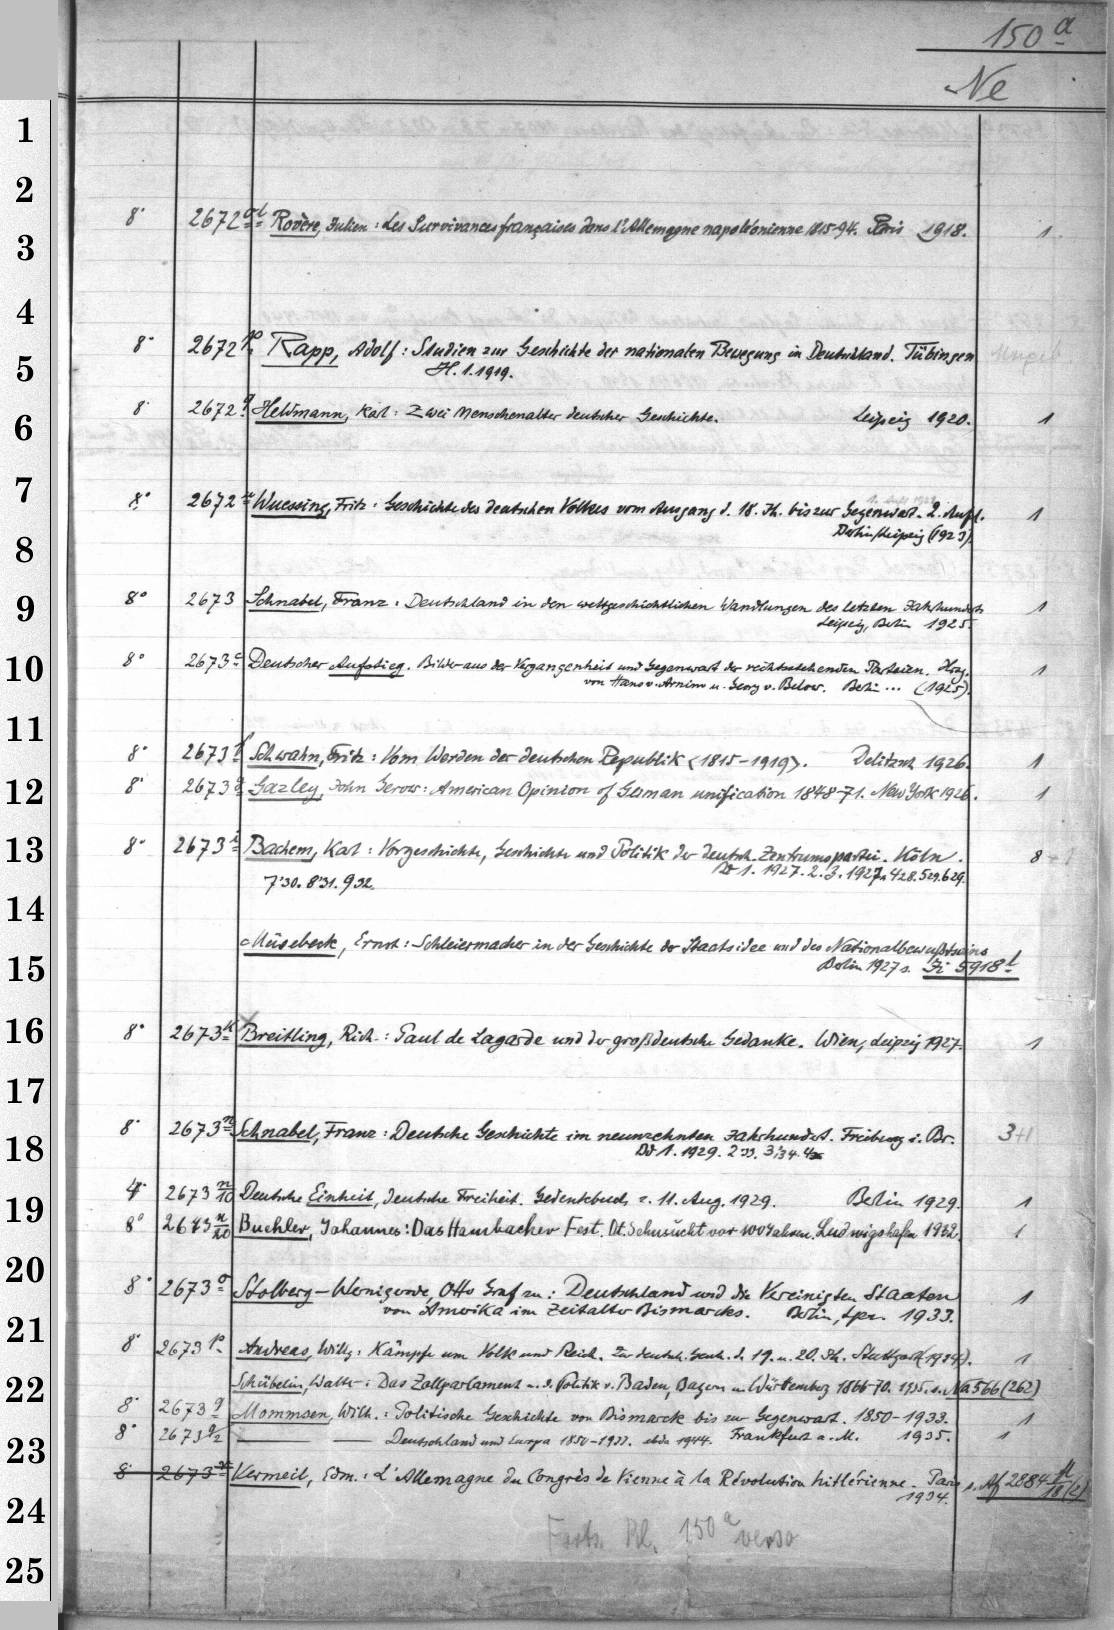 150 a
Ne
1
2
8° 2672 Rovère, Julien: Les Survivances françaises dans l'Allemagne napoléonienne 1815-94. Paris 1918. 1
3
4
8° 2672 p Rapp, Adolf: Studien zur Geschichte der nationalen Bewegung in Deutschland. Tübingen
5
H. 1. 1919.
8° 2672 q Heldmann, Karl: Zwei Menschenalter deutscher Geschichte. Leipzig 1920. 1
6
7
8° 2672 Wuessing, Fritz: Geschichte des deutschen Volkes vom Ausgang d. 18. Jh. bis zur Gegenwart. 2. Aufl. 1
8
Berlin/Leipzig (1923).
8° 2673 Schnabel, Franz: Deutschland in den weltgeschichtlichen Wandlungen des letzten Jahrhunderts 1
9
Leipzig, Berlin 1925.
8° 2673 c Deutscher Aufstieg. Bilder aus der Vergangenheit und Gegenwart der rechtsstehenden Parteien. Hrsg. 1
10
von Hans v. Arnim u. Georg v. Below. Berlin ... (1925).
11
8° 2673 f Schwahn, Fritz: Vom Werden der deutschen Republik <1815-1919>. Delitzsch 1926. 1
12
8° 2673 g Gazley, John Gerow: American Opinion of German unification 1848-71. New York 1926. 1
13
8° 2673 i Bachem, Karl: Vorgeschichte, Geschichte und Politik der deutsch. Zentrumspartei. Köln. 8
Bd 1. 1927. 2. 3. 1927. 4 28. 5 29. 6 29.
7'30. 8'31. 9 32.
14
Müsebeck, Ernst: Schleiermacher in der Geschichte der Staatsidee und des Nationalbewußtseins
15
Berlin 1927 s. Fi 5918 t
16
8° 2673 k Breitling, Rich.: Paul de Lagarde und der großdeutsche Gedanke. Wien, Leipzig 1927. 1
17
8° 2673 m Schnabel, Franz: Deutsche Geschichte im neunzehnten Jahrhundert. Freiburg i. Br. 3+1
18
Bd 1. 1929. 2 33. 3 34. 4
4° 2673 n/10 Deutsche Einheit, deutsche Freiheit. Gedenkbuch z. 11. Aug. 1929. Berlin 1929. 1
19
8° 2673 n/20 Buchler, Johannes: Das Hambacher Fest. Dt. Sehnsucht vor 100 Jahren. Ludwigshafen 1932. 1
20
8° 2673 o Stolberg-Wernigerode, Otto Graf zu: Deutschland und die Vereinigten Staaten 1
von Amerika im Zeitalter Bismarcks. Berlin, Lpz. 1933.
21
8° 2673 p Andreas, Willy: Kämpfe um Volk und Reich. Zur deutsch. Gesch. d. 19. u. 20. Jh. Stuttgart (1934). 1
22
Schübelin, Walter: Das Zollparlament u. d. Politik v. Baden, Bayern u. Württemberg 1866-70. 1935. s. Na 566 (262)
8° 2673 q Mommsen, Wilh.: Politische Geschichte von Bismarck bis zur Gegenwart. 1850-1933. 1
Frankfurt a. M. 1935.
23
8° 2673 q/2 — — Deutschland und Europa 1850-1933. ebda 1944. 1
8° 2673 Vermeil, Edm.: L'Allemagne du Congrès de Vienne à la Révolution hitlérienne. Paris s. Af 2884 k/18 (2)
1934.
24
Forts. Bl. 150 a verso
25